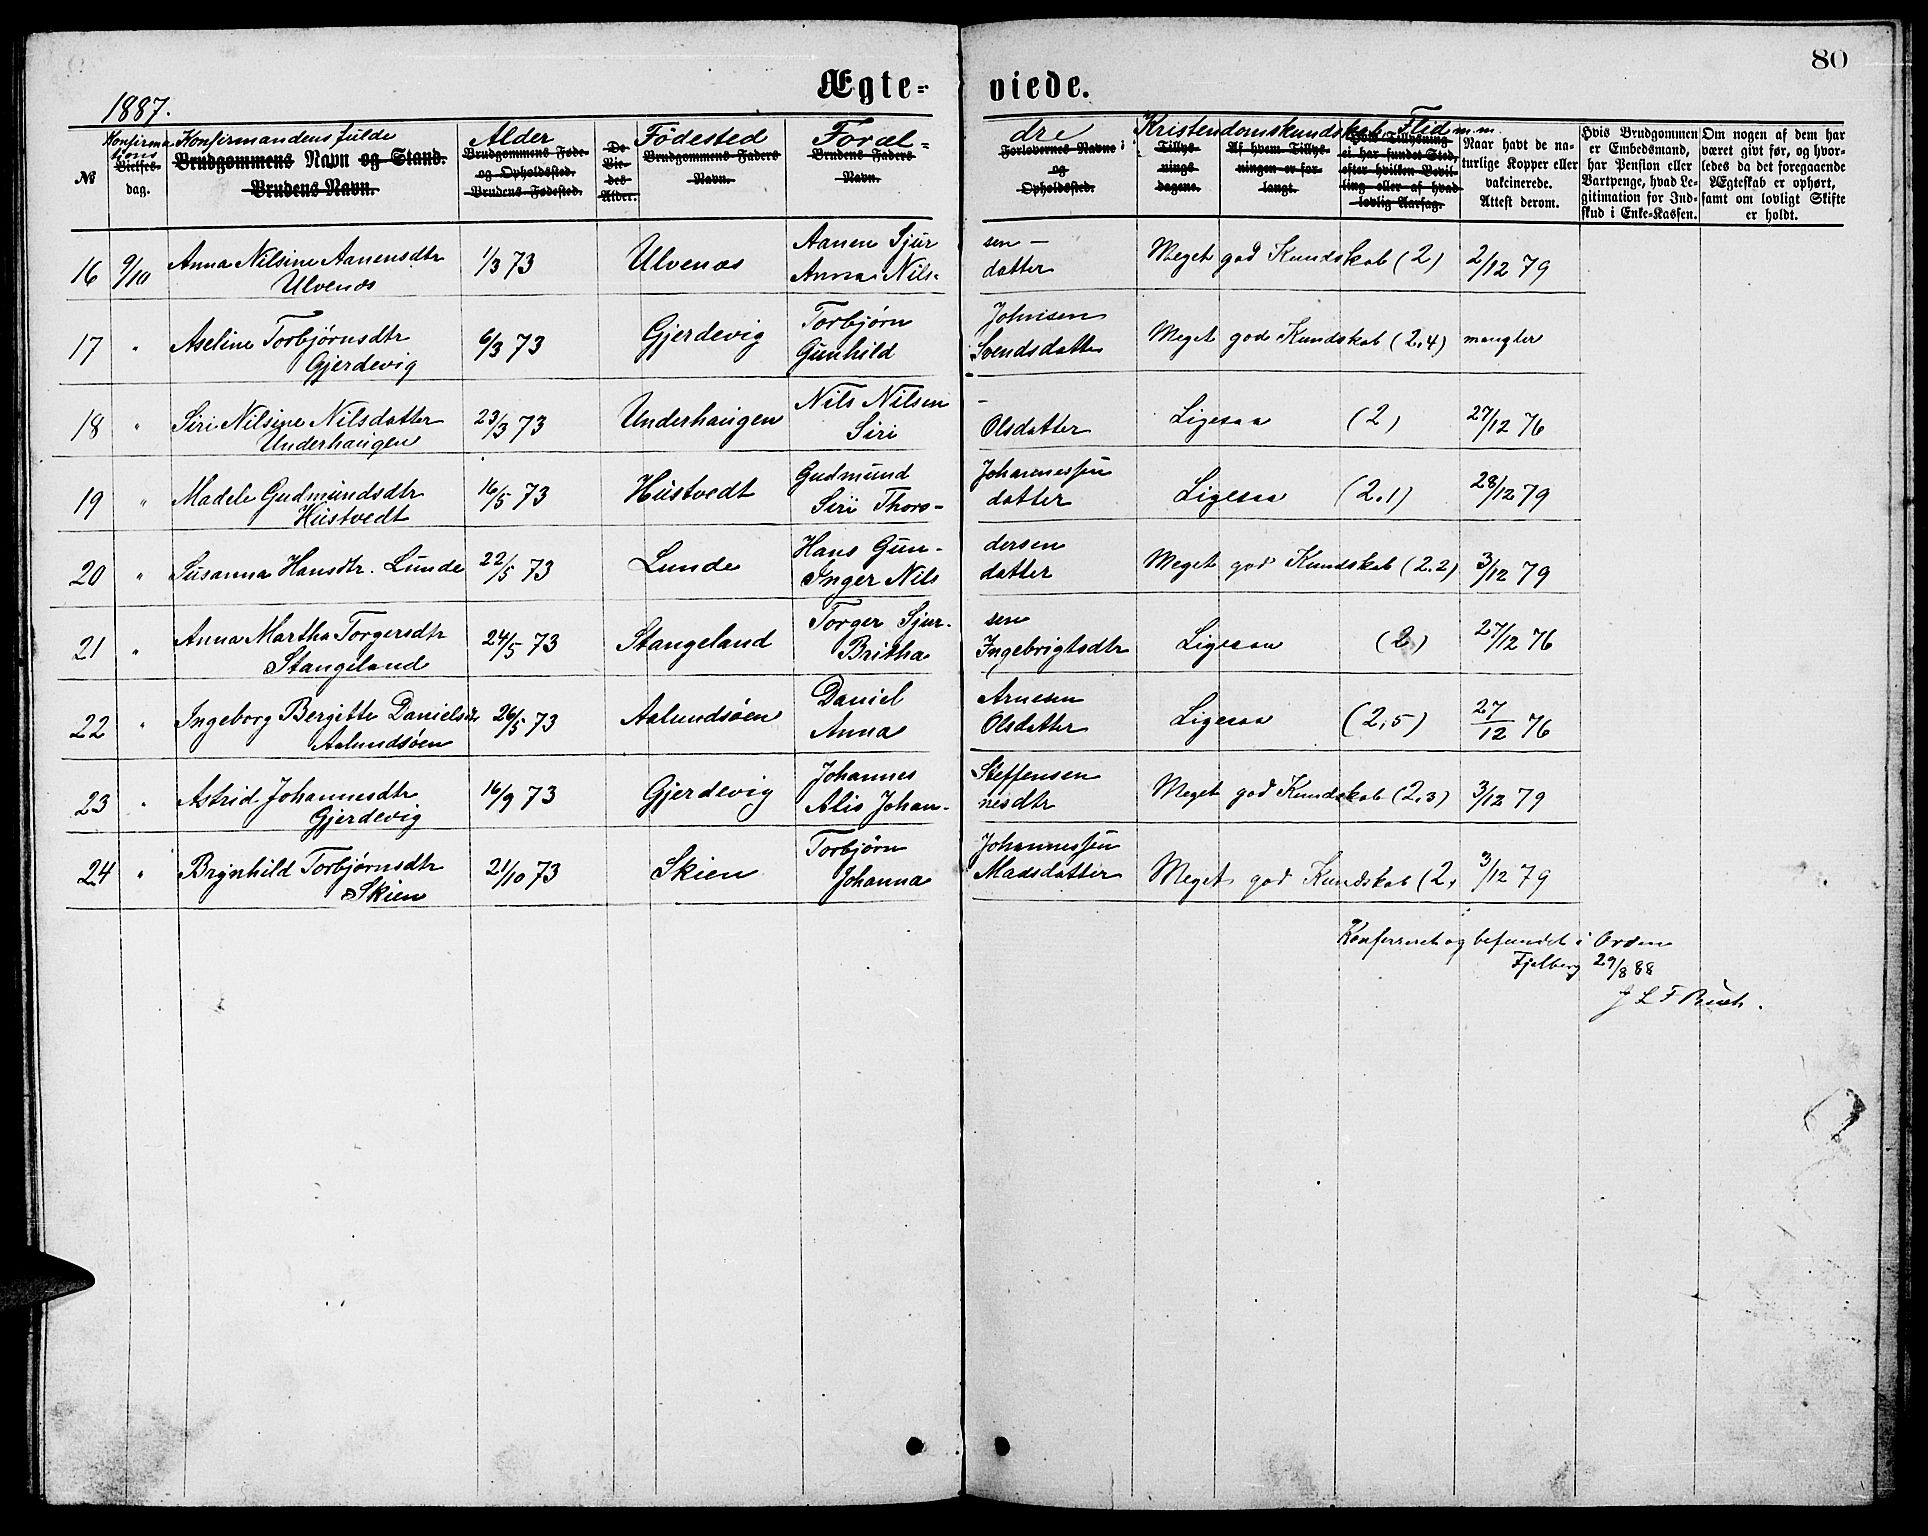 80
Ægte- viede.
1887.
№ Konfirmations Vielses- dag. Konfirmandens fulde Brudgommens Navn og Stand. Brudens Navn. Alder Brudgommens Føde- og Opholdssted. Brudens Fødested. De Vie- des Alder. Fødested Brudgommens Faders Navn. Foræl- Brudens Faders Navn. dre Forlovernes Navne og Opholdssted. Kristendomskundskab Flid m.m. Tillys- nings- dagene. Af hvem Tillys- ningen er for- langt. Hvis Tillysning ei har fundet Sted, efter hvilken Bevil- ling eller af hvad lovlig Aarsag. Naar havt de na- turlige Kopper eller vakcinerede. Attest derom. Hvis Brudgommen er Embedsmand, har Pension eller Vartpenge, hvad Le- gitimation for Ind- skud i Enke-Kassen. Om nogen af dem har været givt før, og hvor- ledes da det foregaaende Ægteskab er ophørt, samt om lovligt Skifte er holdt.
16 9/10 Anna Nilsine Aanensdtr 1/3 73 Ulvenos Aanen Sjur sen — Meget god Kundskab (2) 2/12 79
Ulvenos Anna Nils- datter
17 " Aseline Torbjørnsdtr 6/3 73 Gjerdevig Torbjørn Johnsen Meget god Kundskab (2,4) mangler
Gjerdevig Gunhild Svendsdatter
18 " Siri Nilsine Nilsdatter 23/3 73 Underhaugen Nils Nilsen — Ligesaa (2) 27/12 76
Underhaugen Siri Olsdatter
19 " Madele Gudmundsdtr 16/5 73 Hustvedt Gudmund Johannessen Ligesaa (2,1) 28/12 79
Hustvedt Siri Thors- datter
20 " Susanna Hansdtr. Lunde 22/5 73 Lunde Hans Gun- dersen Meget god Kundskab (2,2) 3/12 79
Inger Nils datter
21 " Anna Martha Torgersdtr 24/5 73 Stangeland Torger Sjur- sen Ligesaa (2) 27/12 76
Stangeland Britha Ingebrigtsdtr
22 " Ingeborg Bergitte Danielsdtr 26/5 73 Aalundsøen Daniel Arnesen Ligesaa (2,5) 27/12 76
Aalundsøen Anna Olsdatter
23 " Astrid Johannesdtr 16/9 73 Gjerdevig Johannes Steffensen Meget god Kundskab (2,3) 3/12 79
Gjerdevig Alis Johan- nesdtr
24 " Brynhild Torbjørnsdtr 21/10 73 Skien Torbjørn Johannessen Meget god Kundskab (2, 3/12 79
Skien Johanna Madsdatter
Konfereret og befundet i Orden
Fjelberg 29/8 88
J L F Buch.